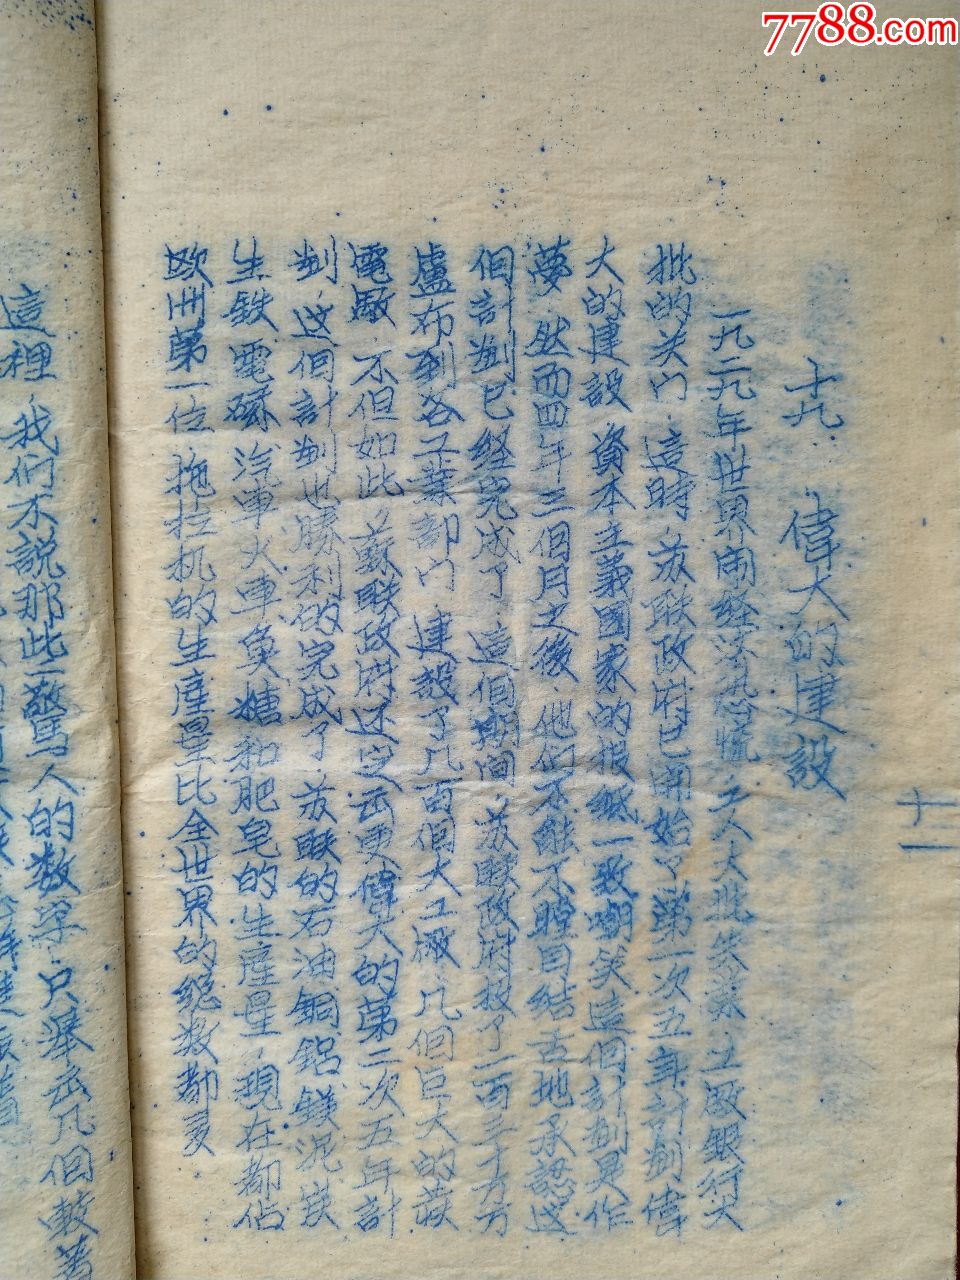 7788.com
十二
十九．偉大的建設
一九二九年世界闹经济恐慌，工人大批失業，工廠銀行大
批的关门，這時，苏联政府已開始了第一次五年計劃偉
大的建設，資本主義國家的报紙一致嘲笑這個計劃是作
夢，然而四年三個月之後，他们不能不瞪目结舌地承認这
個計劃已经完成了，這個期间，苏联政府投了二百三十万万
盧布到各工業部门，建設了几百個大工廠，几個巨大的發
電廠，不但如此，蘇联政府还定出更偉大的第二次五年計
劃，这個計劃也勝利的完成了，苏联的石油銅鋁鎂泥炭
生鉄電碳汽車火車魚糖和肥皂的生産量，現在都佔
欧洲第一位，拖拉机的生産量比全世界的總数都多
這裡，我们不説那些驚人的数字，只舉出几個鼓著